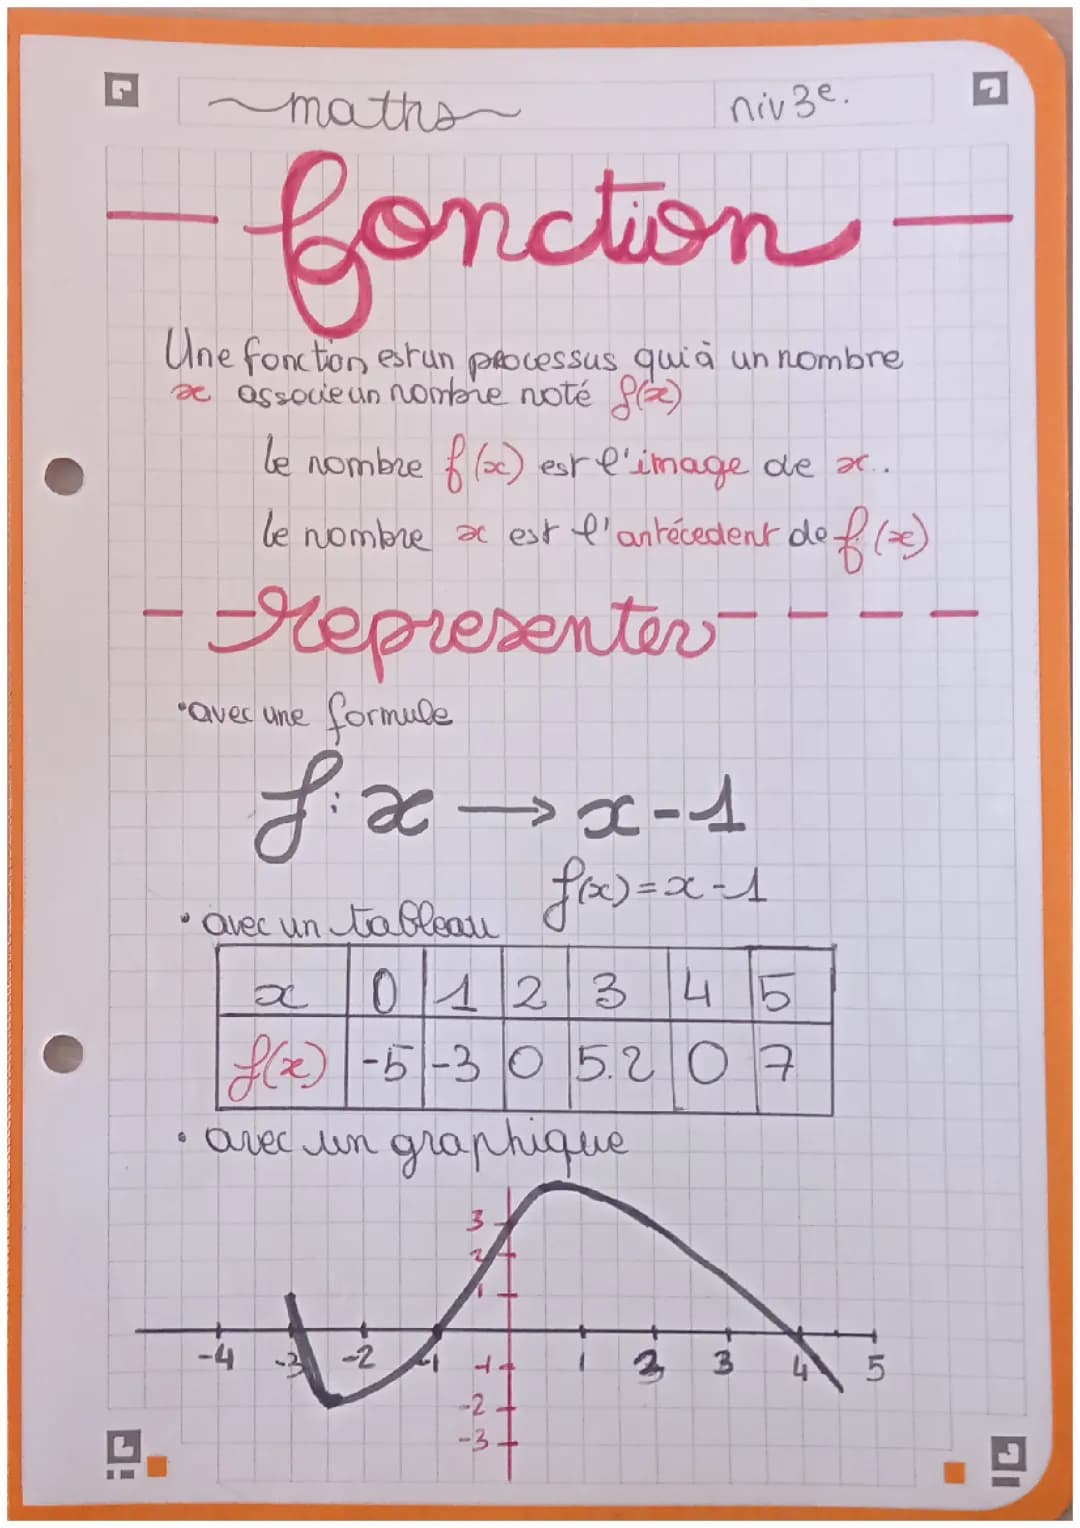 maths
niv 3e.
fonction
Une fonction est un processus qui à un nombre
x associe un nombre noté f(x)
le nombre f(x) est l'image de x..
le nombre x est l'antécedent de f(x)
representer
•avec une formule
f: x → x-1
f(x)=x-1
• avec un tableau
x 0 1 2 3 4 5
f(x) -5 -3 0 5.2 0 7
• avec un graphique
3
2
1
-4 -3 -2 -1 -1 1 2 3 4 5
-2
-3